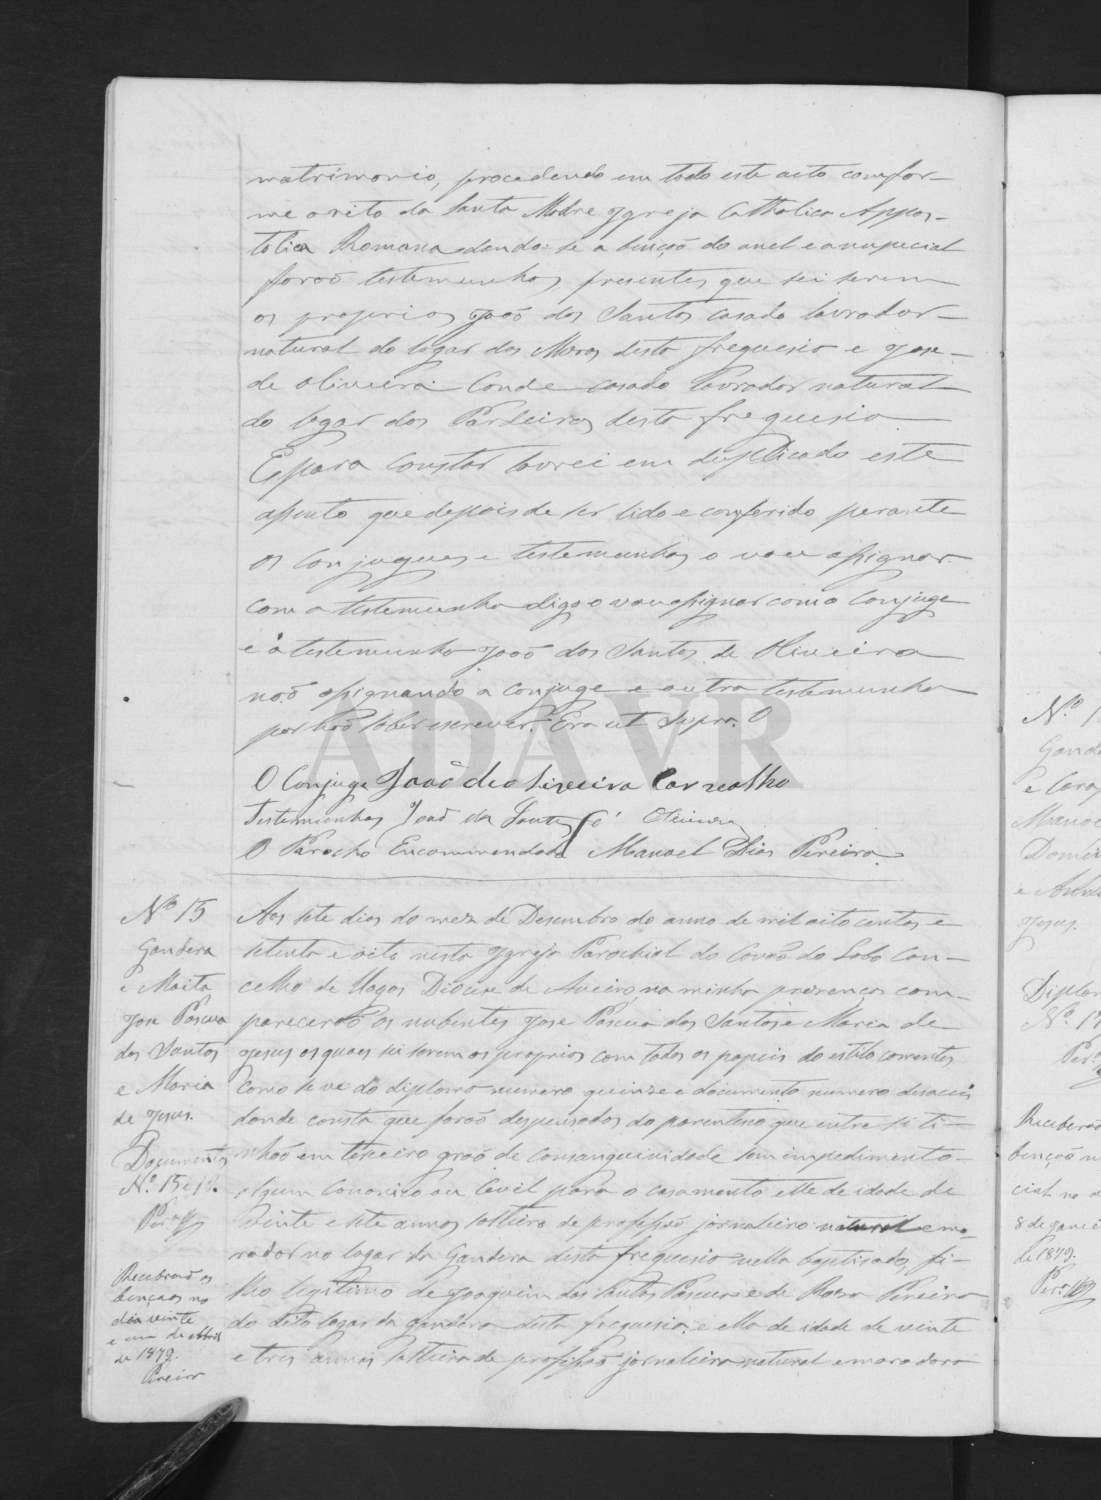 matrimonio, procedendo em todo este acto confor-
me o rito da Santa Madre Ygreja Catholica Appos-
tolica Romana dando-se a benção do anel e a nupcial
foraõ testemunhas presentes que sei serem
os proprios Joaõ dos Santos casado lavrador
natural do lugar dos Moros desta freguesia e Jose
de Oliveira Conde casado lavrador natural
do logar dos Pardeiros desta freguesia
E para constar lavrei em duplicado este
assento que depois de ser lido e conferido perante
os conjuges e testemunhas o vou assignar
com a testemunha digo o vou assignar com o Conjuge
e a testemunha Joaõ dos Santos de Oliveira
naõ assignando a conjuge e outra testemunha
por naõ saber escrever. Era ut supra. O
ADAVR
O Conjuge Joaõ de oliveira Carvalho
Testemunhas Joaõ dos Santos Oliveira
O Parocho Encommendado Manoel Dias Pereira
Nº 15
Gandera
e Maria
de Jesus.
Jose Pascua
dos Santos
e Maria
de Jesus.
Documentos
Nº 15 e 16.
Receberaõ as
bençaos no
dia vinte
e um de Abril
de 1879.
Pereira
Aos sete dias do mez de Desembro do anno de mil oito centos e
setenta e oito nesta Ygreja Parochial do Covaõ do Lobo Con-
celho de Vagos Diocese de Aveiro, na minha presença com-
pareceraõ os nubentes Jose Pascua dos Santos e Maria de
Jesus os quaes sei serem os proprios com todos os papeis do estilo correntes
como se ve do diploma numero quinze e documento numero deseseis
donde consta que foraõ despensados do parentesco que entre si ti-
nhaõ em terceiro graõ de Consanguinidade sem impedimento
algum Canonico ou Civil para o casamento elle de idade de
vinte e sete annos solteiro de profissaõ jornaleiro natural e mo-
rador no logar da Gandera desta freguesia nella baptisado, fi-
lho legitimo de Joaquim dos Santos Pascua e de Rosa Pereira
do dito logar da Gandera desta freguesia: e ella de idade de vinte
e tres annos solteira de profissaõ jornaleira natural e moradora
Nº 1
Gande
Manoe
Domin
Jesus.
Diplom
Nº 1
Receberaõ
benção n
cial no d
8 de Janei
de 1879.